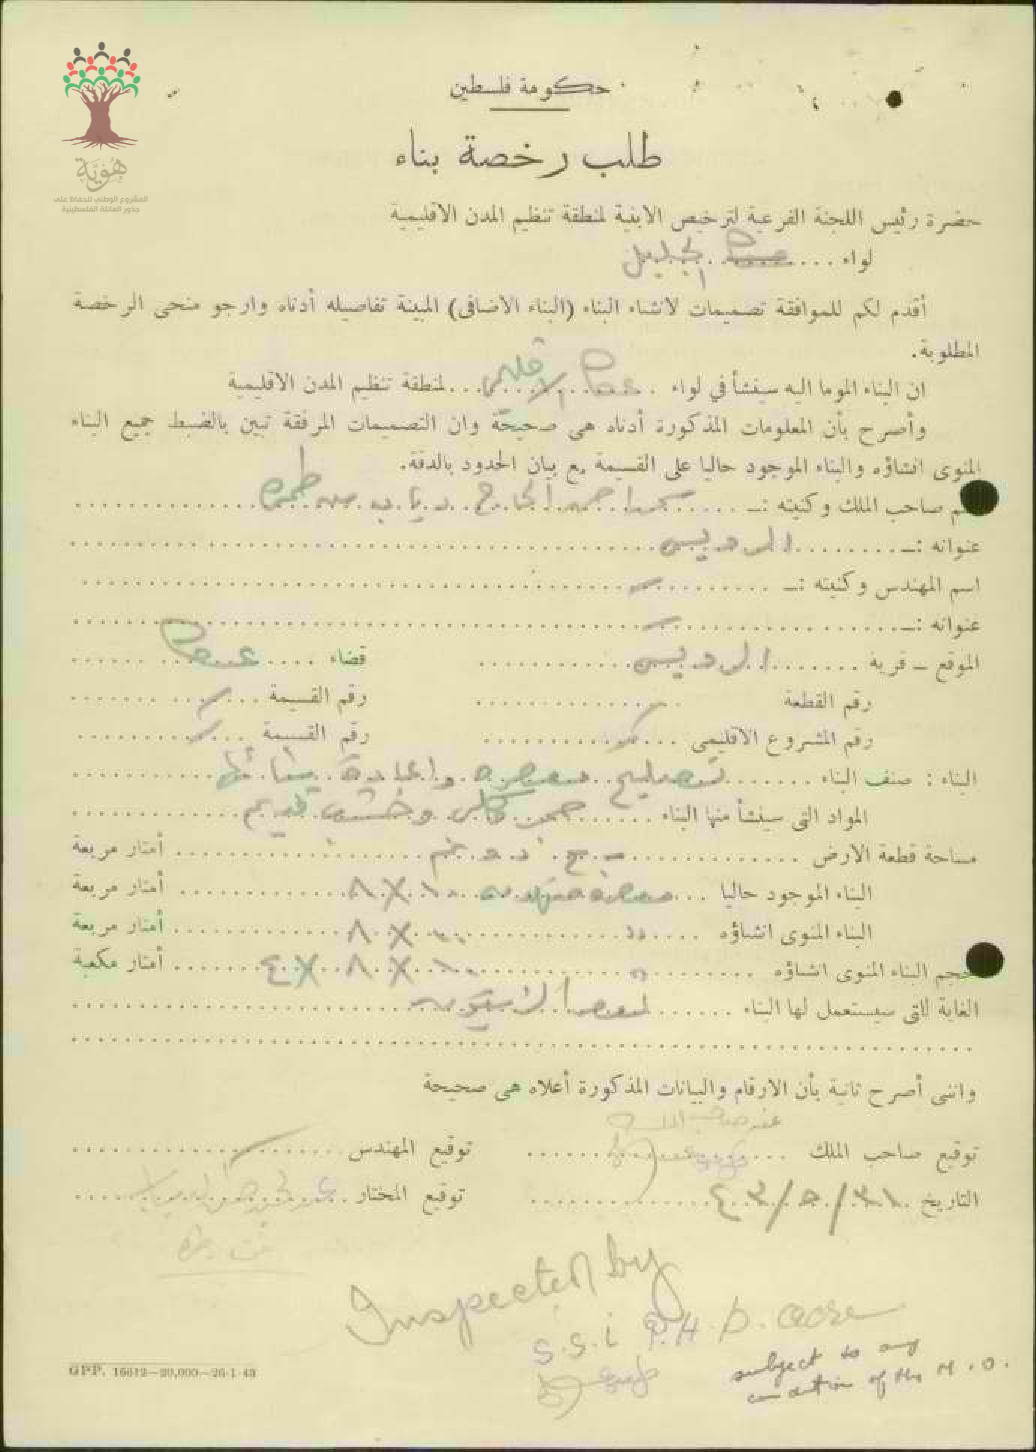 هُوِيَّة
المشروع الوطني للحفاظ على
جذور العائلة الفلسطينية
حكومة فلسطين
طلب رخصة بناء
حضرة رئيس اللجنة الفرعية لترخيص الابنية لمنطقة تنظيم المدن الاقليمية
لواء .... الجليل
أقدم لكم للموافقة تصميمات لانشاء البناء (البناء الاضافى) المبينة تفاصيله أدناه وارجو منحى الرخصة
المطلوبة.
ان البناء الموما اليه سينشأ في لواء . عكا الاقليمى ... لمنطقة تنظيم المدن الاقليمية
وأصرح بأن المعلومات المذكورة أدناه هى صحيحة وان التصميمات المرفقة تبين بالضبط جميع البناء
المنوى انشاؤه والبناء الموجود حاليا على القسيمة مع بيان الحدود بالدقة.
اسم صاحب الملك وكنيته :ـ احمد الحاج دياب من طمره
عنوانه :ـ الرويس
اسم المهندس وكنيته :ـ
عنوانه :ـ
الموقع ـ قرية الرويس قضاء عكا
رقم القطعة رقم القسيمة
رقم المشروع الاقليمى رقم القسيمة
البناء : صنف البناء تصليح معصره واعادة بنائها
المواد التى سينشأ منها البناء حجر وكلس وخشب قديم
مساحة قطعة الارض دونم أمتار مربعة
البناء الموجود حاليا معصرة ١٠ X ٨ أمتار مربعة
البناء المنوى انشاؤه " ١٠ X ٨ أمتار مربعة
حجم البناء المنوى انشاؤه " ١٠ X ٨ X ٤ أمتار مكعبة
الغاية التى سيستعمل لها البناء لعصر الزيتون
واننى أصرح ثانية بأن الارقام والبيانات المذكورة أعلاه هى صحيحة
عن صاحب الملك
توقيع صاحب الملك توقيع المهندس
التاريخ ٣١/٥/٤٣ توقيع المختار
Inspected by
S.S.i P.H.D. acre
subject to any
condition of the M.O.
GPP. 16612—20,000—26-1-43